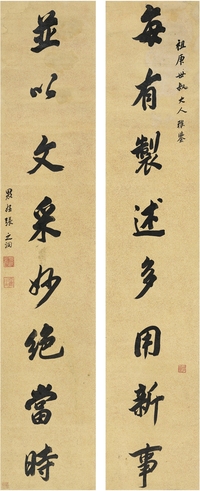 祖庚世叔大人雅鉴
每有製述多用新事
並以文采妙絶當時
張之洞